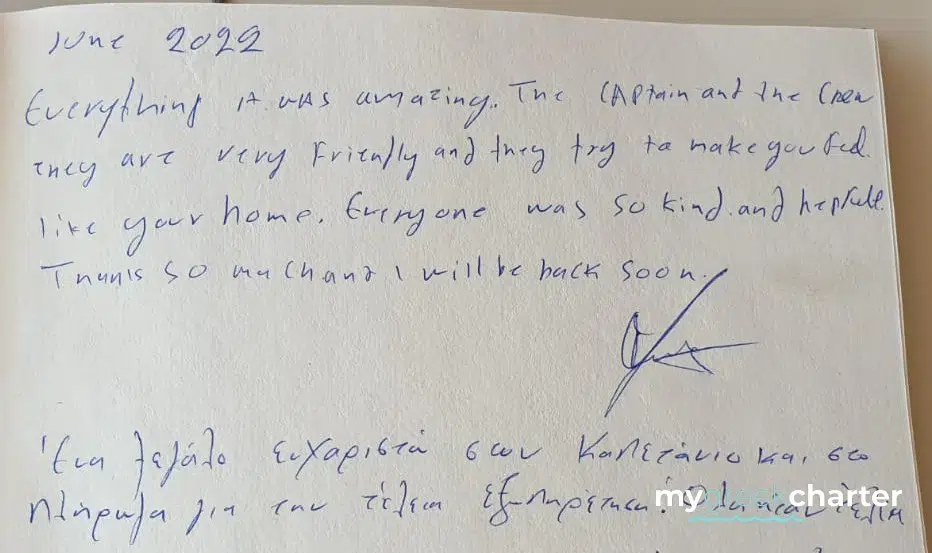 June 2022
Everything it was amazing. The captain and the crew
they are very friendly and they try to make you feel
like your home. Everyone was so kind and hepfull.
Thanks so much and I will be back soon.
Ένα μεγάλο ευχαριστώ στον Καπετάνιο και στο
πλήρωμα για την τέλεια εξυπηρέτηση! Όλα ήταν τέλεια
my charter